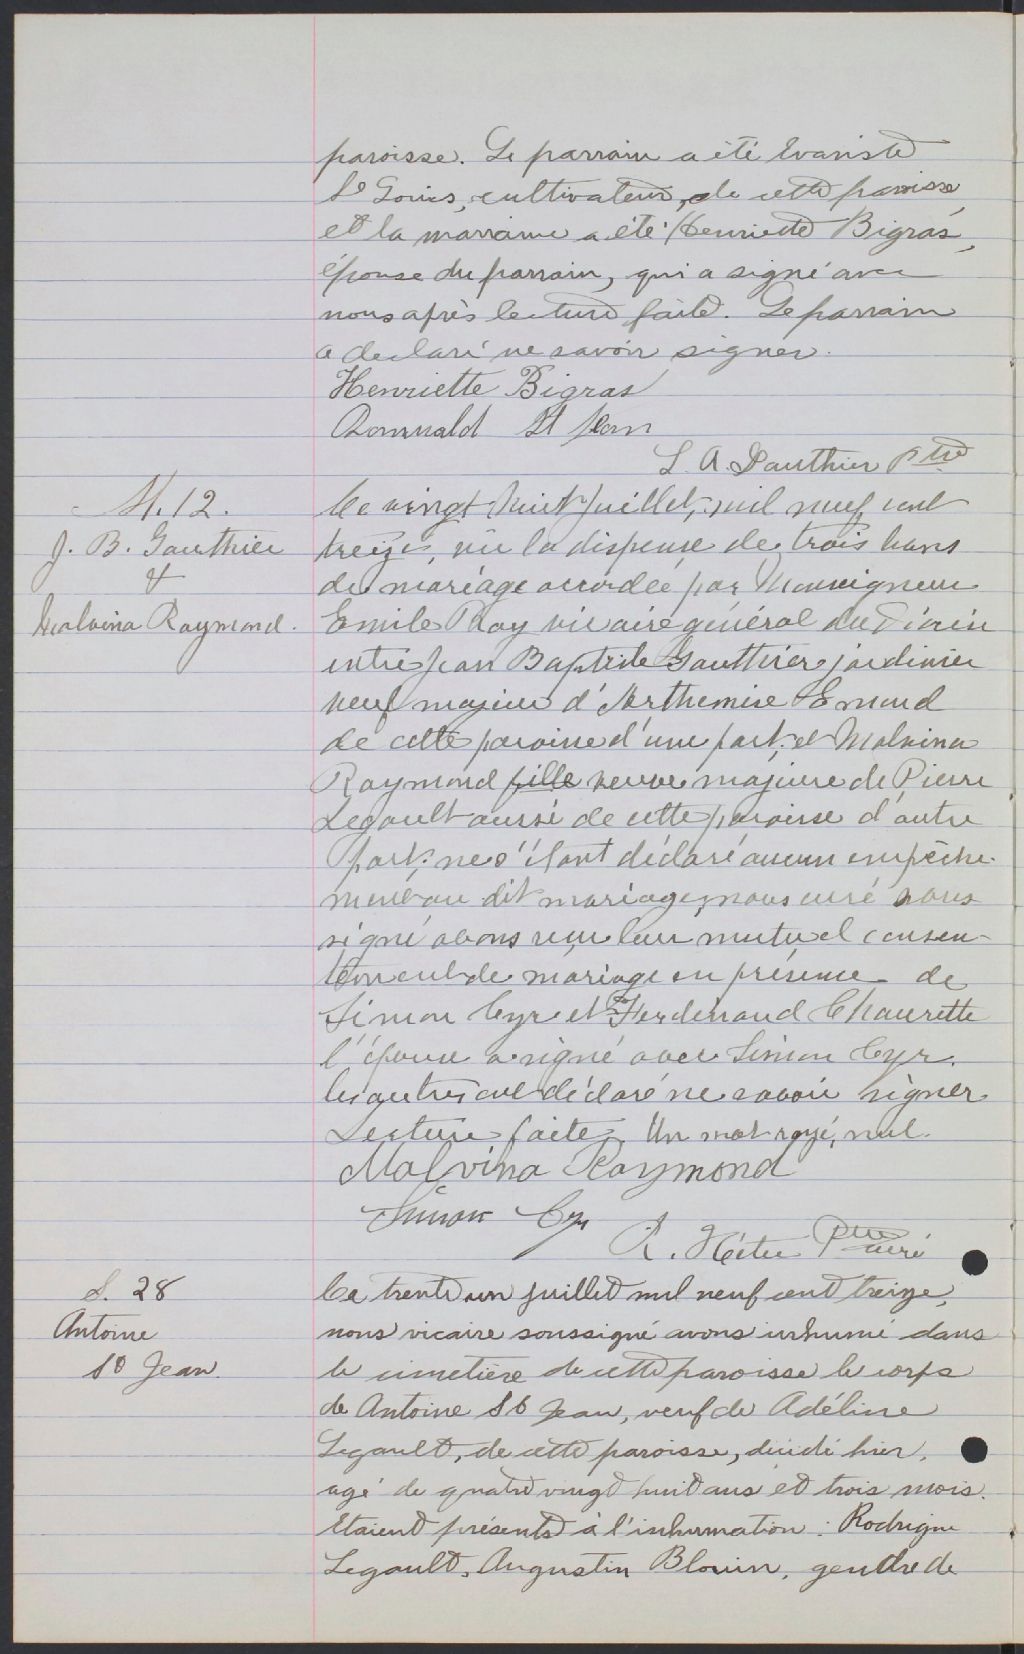 paroisse. Le parrain a été Evariste
St Louis, cultivateur, de cette paroisse
et la marraine a été Henriette Bigras,
épouse du parrain, qui a signé avec
nous après lecture faite. Le parrain
a declaré ne savoir signer.
Henriette Bigras
Romuald St Jean
L. A. Gauthier Ptre
M. 12.
J. B. Gauthier
&
Malvina Raymond.
Ce vingt huit Juillet, mil neuf cent
treize, vu la dispense de trois bans
de mariage accordée par Monseigneur
Emile Roy vicaire général du Diocèse
entre Jean Baptiste Gauthier jardinier
veuf majeur d'Arthemise Emond
de cette paroisse d'une part; et Malvina
Raymond fille veuve majeure de Pierre
Legault aussi de cette paroisse d'autre
part; ne s'étant déclaré aucun empêche-
ment au dit mariage, nous curé sous
signé avons reçu leur mutuel consen-
tement de mariage en présence de
Simon Cyr et Ferdinand Chaurette
l'épouse a signé avec Simon Cyr.
les autres ont déclaré ne savoir signer
Lecture faite. Un mot rayé, nul.
Malvina Raymond
Simon Cyr
R. Hétu Ptre curé
S. 28
Antoine
St Jean.
Ce trente un juillet mil neuf cent treize,
nous vicaire soussigné avons inhumé dans
le cimetière de cette paroisse le corps
de Antoine St Jean, veuf de Adéline
Legault, de cette paroisse, décédé hier,
agé de quatre vingt huit ans et trois mois.
Etaient présents à l'inhumation: Rodrigue
Legault, Augustin Blouin, gendre de